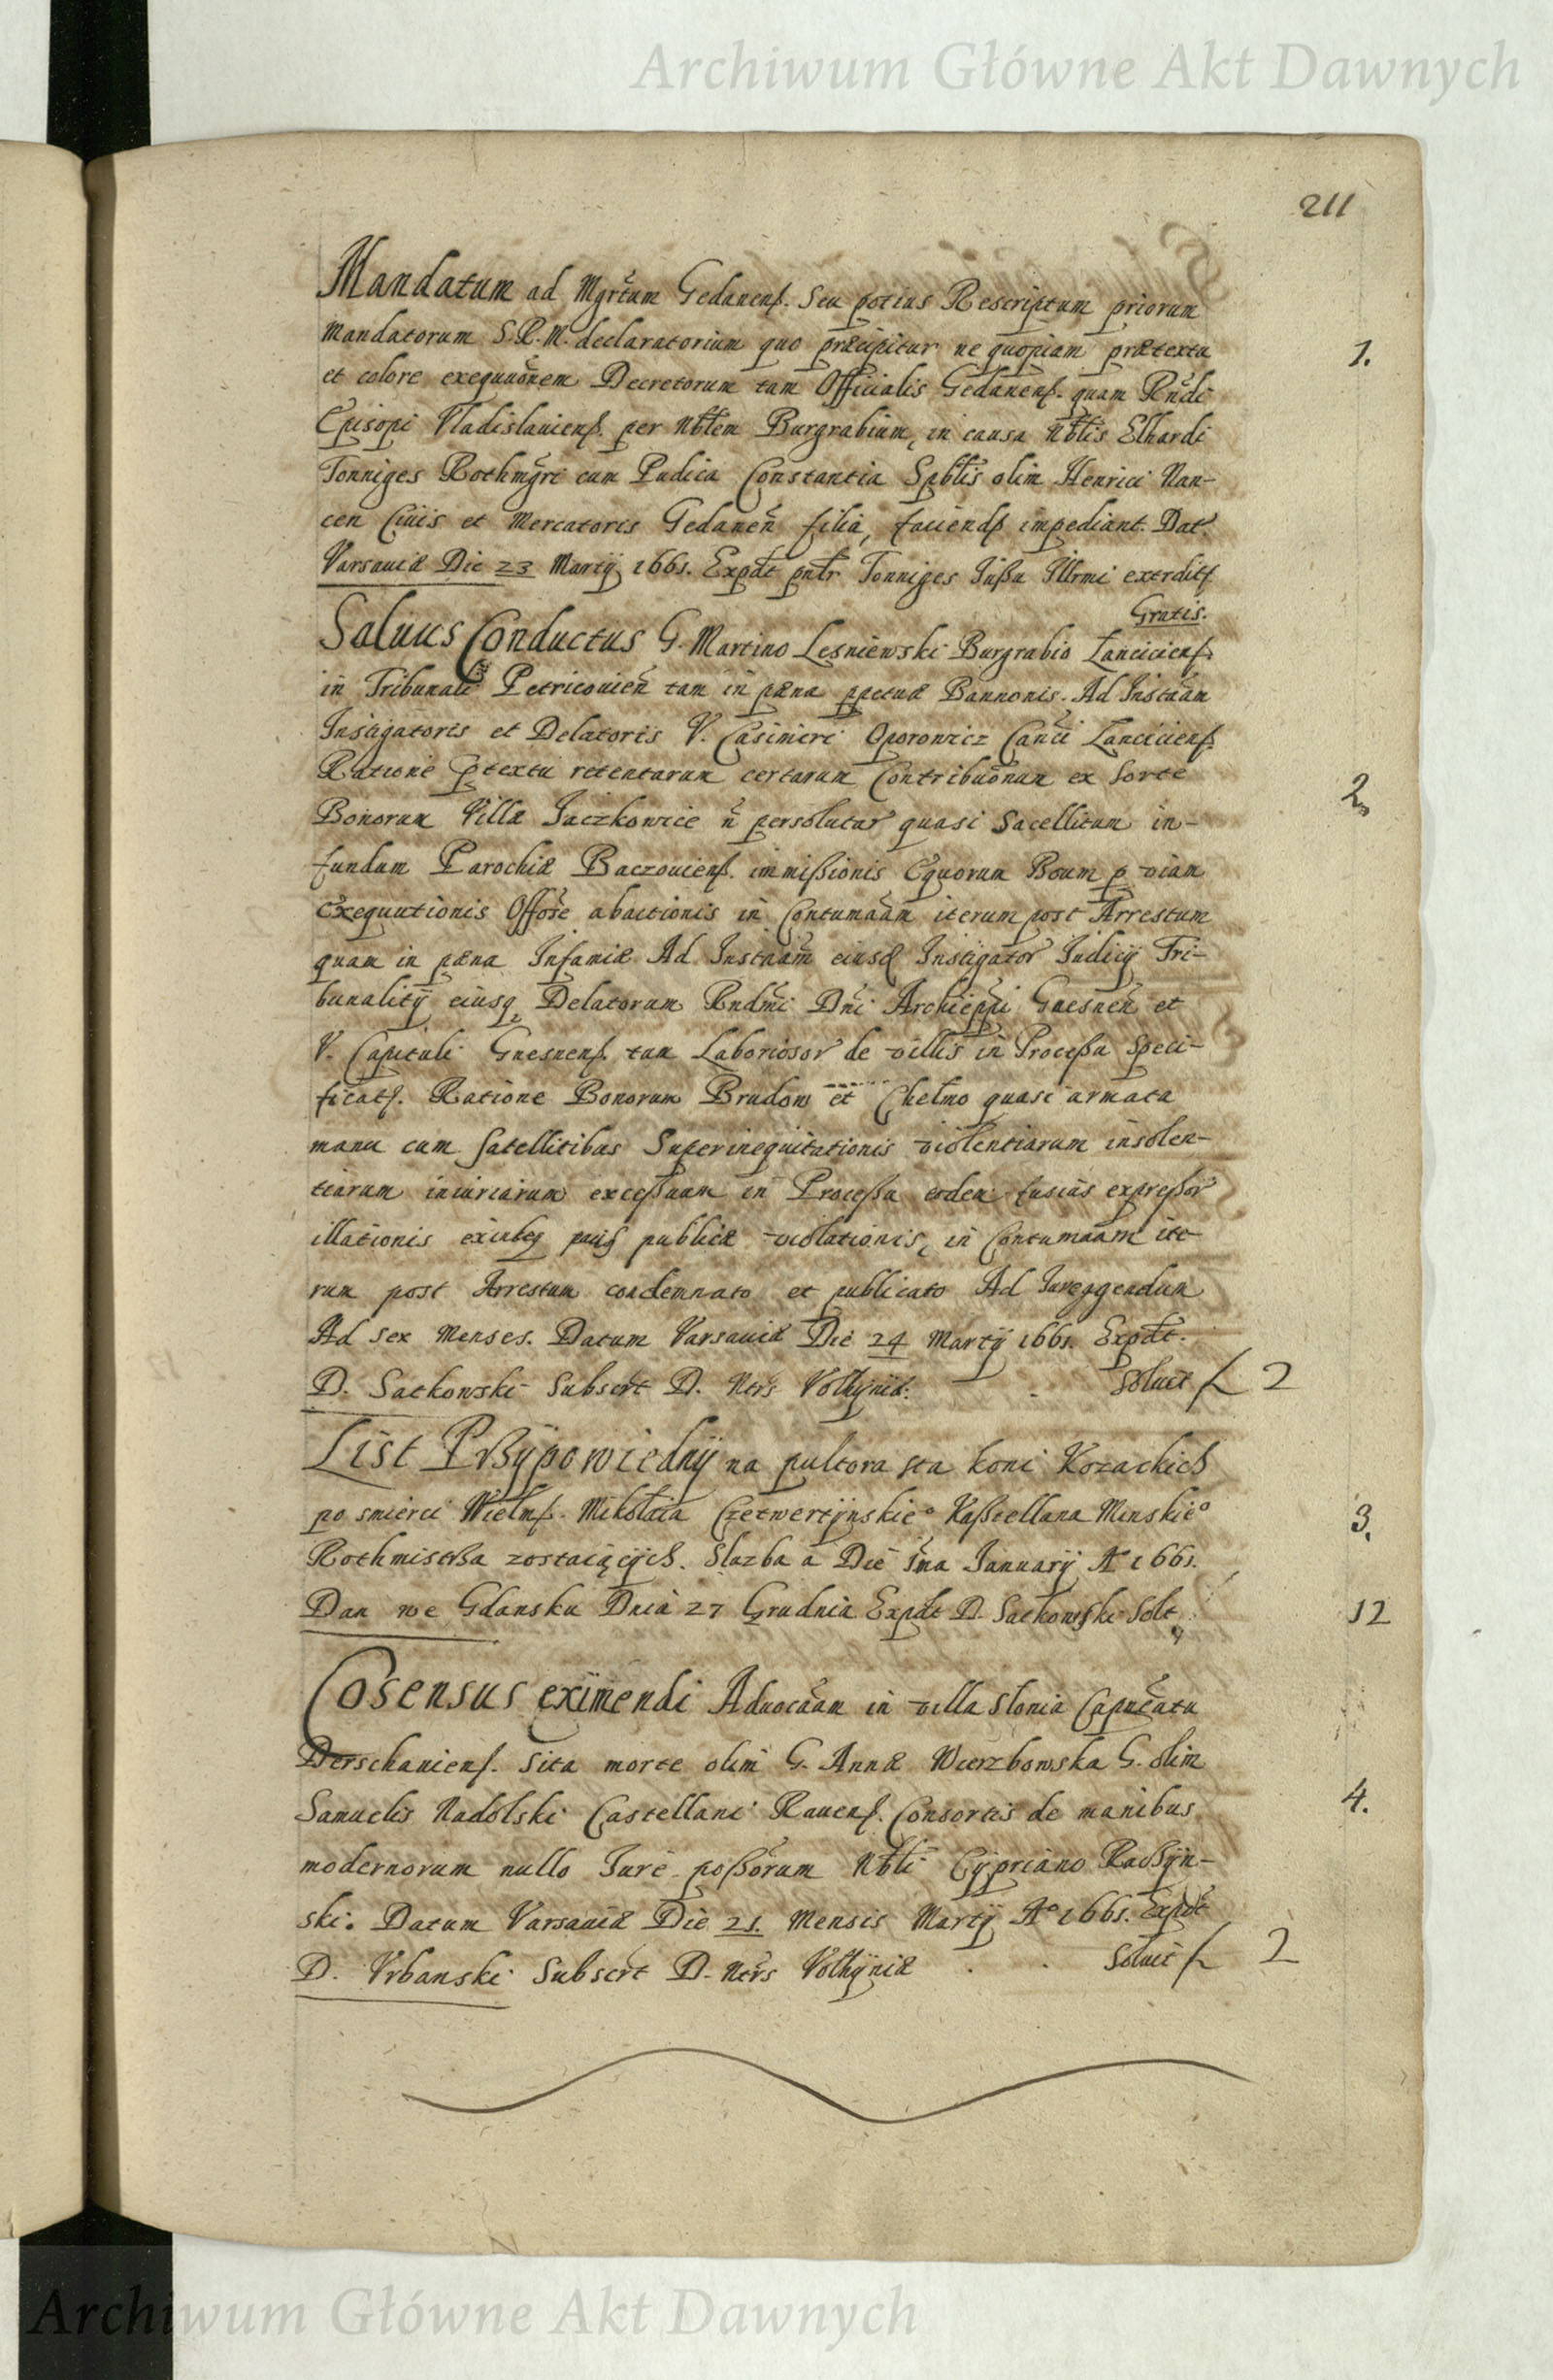 Archiwum Główne Akt Dawnych
211
Mandatum ad Mgrtum Gedanens. Seu potius Rescriptum priorum
Mandatorum S.R.M. declaratorium quo præcipitur ne quopiam prætextu 1.
et colore exequuonem Decretorum tam Officialis Gedanens. quam Rndi
Episopi Vladislauiens. per Nbtem Burgrabium, in causa Nbtis Elhardi
Tonniges Rothmgri cum Pudica Constantia Spbtis olim Henrici Nan-
cen Ciuis et Mercatoris Gedanen filia, faciends impediant. Dat.
Varsauiæ Die 23 Martij 1661. Expdt pntr Tonniges Jussu Illrmi
Gratis.
Saluus Conductus G. Martino Lesniewski Burgrabio Lanciciens.
in Tribunali Petricouien tam in pæna ppetuæ Bannonis. Ad Instaam
Instigatoris et Delatoris V. Casimiri Oporowicz Canci Lanciciens.
Ratione ptextu retentarum certarum Contribuonum ex sorte
Bonorum Villæ Jaczkowice n persolutar quasi Sacellitum in- 2.
fundum Parochiæ Baczouiens. immissionis Equorum Boum p viam
Exequutionis Offose abactionis in Contumaam iterum post Arrestum
quam in pæna Infamiæ Ad Instaam eiusd Instigator Judicij Tri-
bunalitij eiusq Delatorum Rndmi Dni Archieppi Gnesnen et
V. Capituli Gnesnens. tum Laboriosor de villis in Processu Speci-
ficats. Ratione Bonorum Brudow et Chelmo quasi armata
manu cum Satellitibus Superinequitationis violentiarum insolen-
tiarum iniuriarum excessuum in Processu eodem fusius expressor
illationis publicæ violationis, in Contumaam ite-
rum post Arrestum condemnato et publicato Ad Jureaggendum
Ad sex Menses. Datum Varsauiæ Die 24 Martij 1661. Expdt.
D. Satkowski Subscrt D. Nrs Volhyniæ. Soluit f 2
List Przypowiedny na pultora sta koni Kozackich
po smierci Wielms. Mikołaia Czetwertynskieo Kasztellana Minskieo 3.
Rothmistrza zostaiących. Sluzba a Die 1ma Januarij Ao 1661.
Dan we Gdansku Dnia 27 Grudnia Expdt D. Satkowski Solt 12
Cosensus eximendi Aduocaam in villa Slonia Capncatu
Derschauiens. Sita morte olim G. Annæ Wierzbowska G. olim
Samuelis Nadolski Castellani Rauens. Consortis de manibus 4.
modernorum nullo Jure possorum Nbli Cypriano Raczyn-
ski. Datum Varsauiæ Die 21. Mensis Martij Ao 1661. Expdt
D. Vrbanski Subscrt D. Nrs Volhyniæ . . Soluit f 2
Archiwum Główne Akt Dawnych